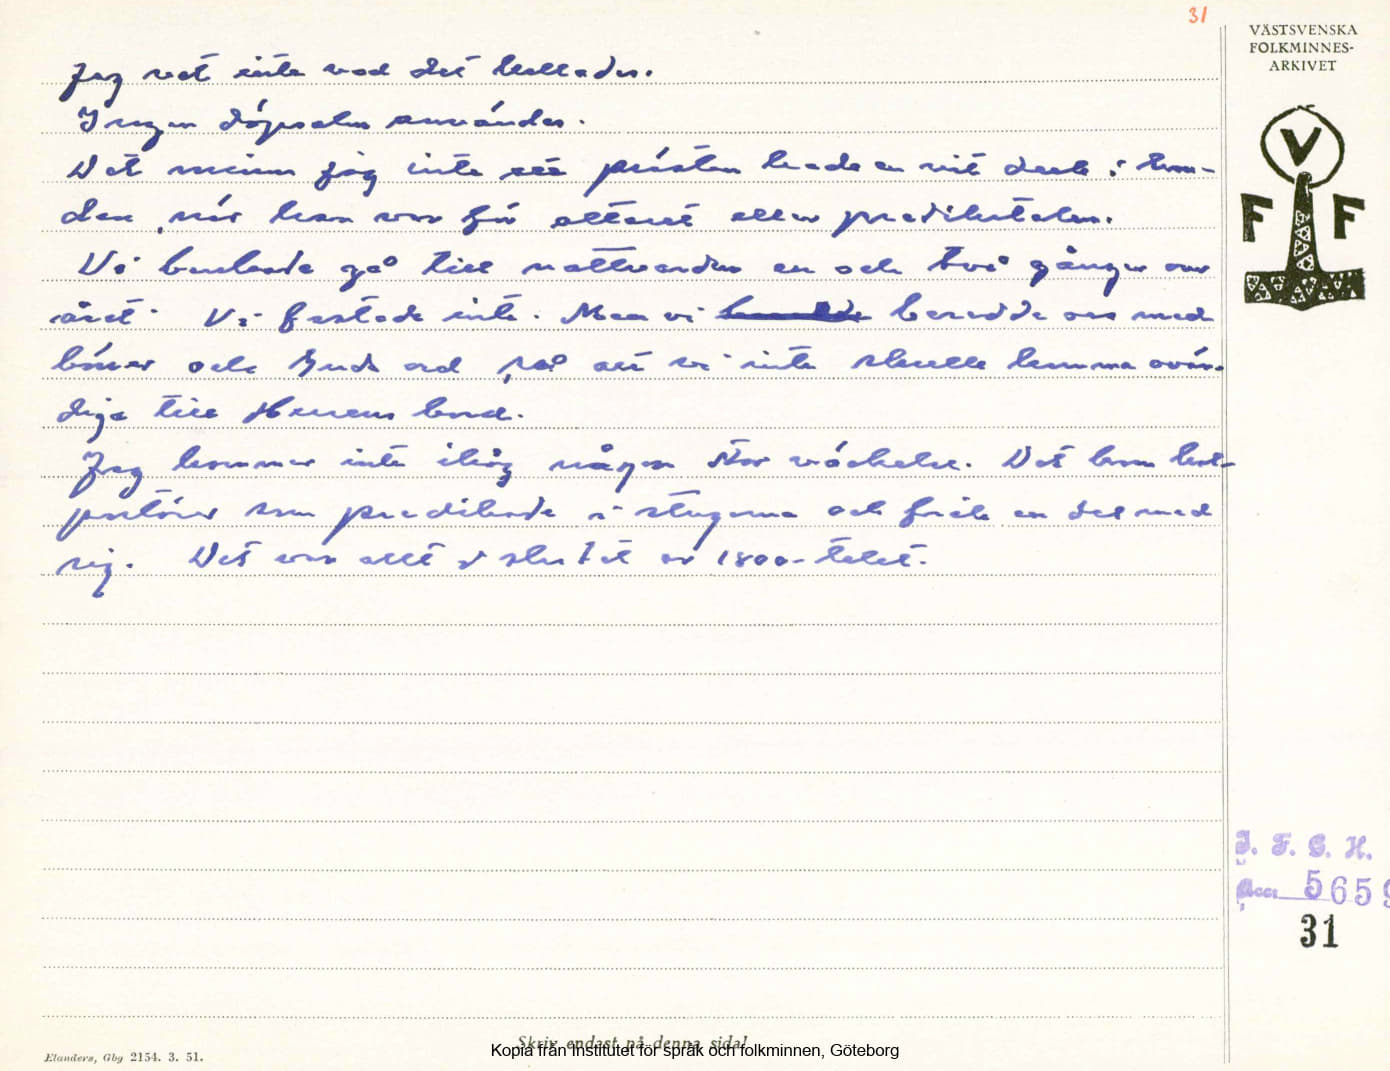 31
VÄSTSVENSKA
FOLKMINNES-
ARKIVET
V
F F
Jag vet inte vad det kallades.
Ingen döpsalm användes.
Det minns jag inte att prästen hade en vit duk i han-
den, när han var för altaret eller predikstolen.
Vi brukade gå till nattvarden en och två gånger om
året. Vi fastade inte. Men vi beredde oss med
böner och Guds ord på att vi inte skulle komma ovär-
diga till Herrens bord.
Jag kommer inte ihåg någon stor väckelse. Det kom kol-
portörer som predikade i stugorna och fick en del med
sig. Det var allt i slutet av 1800-talet.
I. F. G. H.
Acc 5659
31
Skriv endast på denna sida!
Elanders, Gbg 2154. 3. 51.
Kopia från Institutet för språk och folkminnen, Göteborg